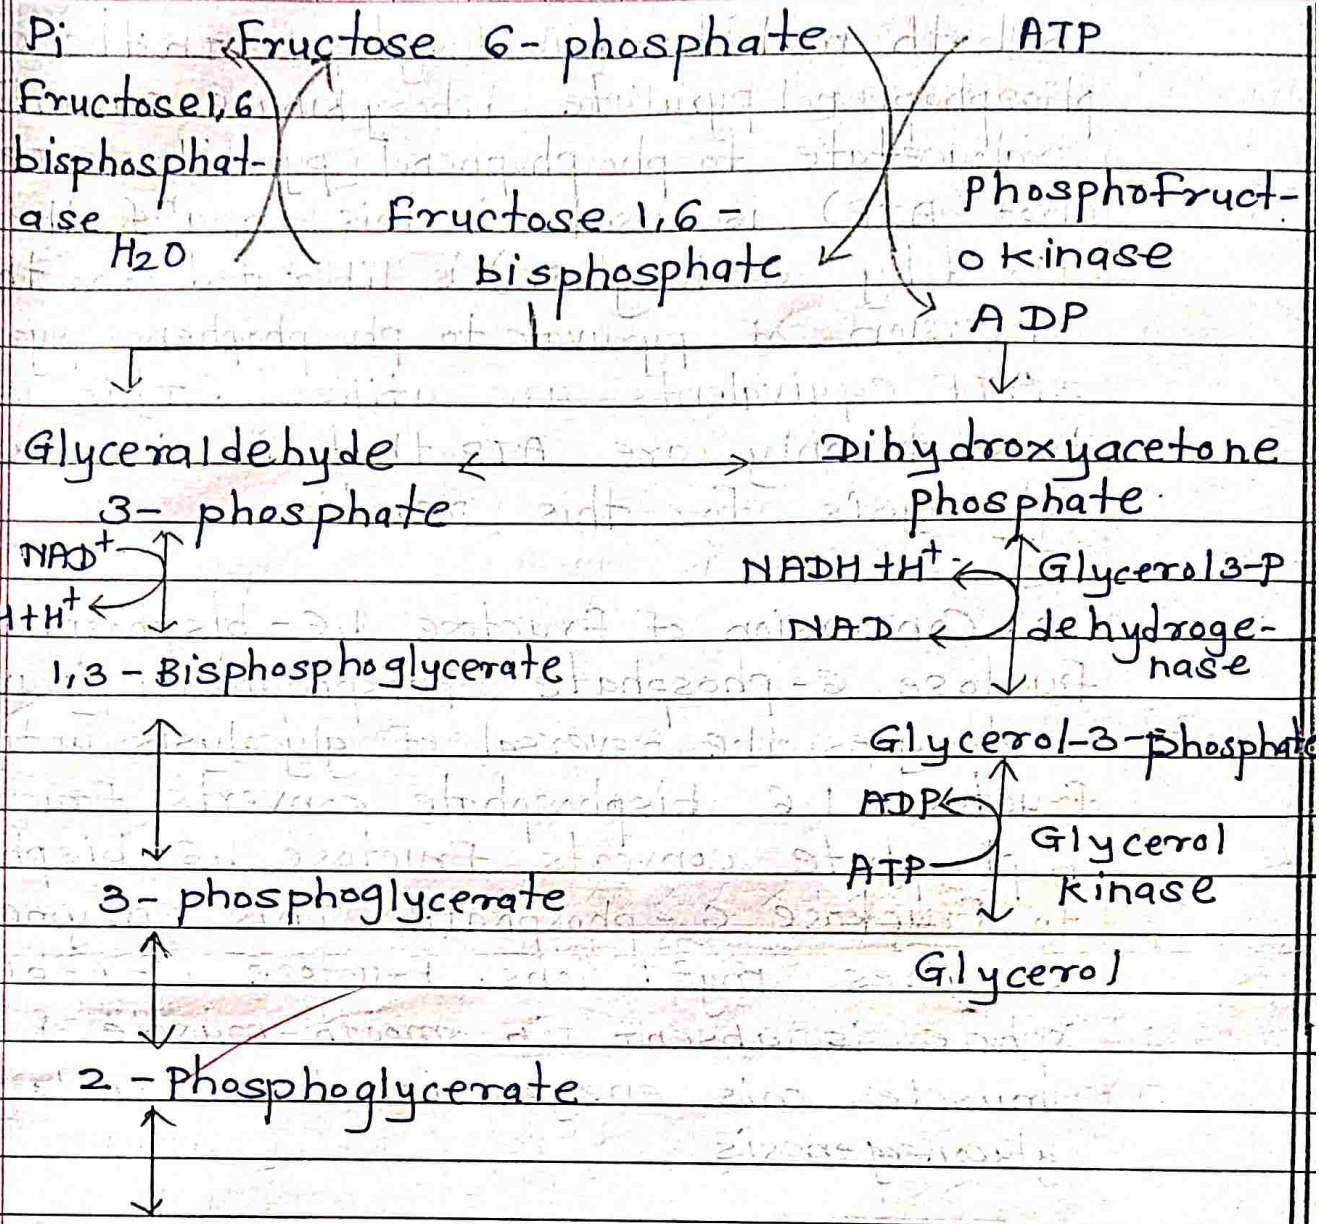 Pi Fructose 6- phosphate ATP
Fructose 1,6
bisphosphat-
ase
H2O
Fructose 1,6 -
bisphosphate
Phosphofruct-
o kinase
ADP
Glyceraldehyde
3- phosphate
Dihydroxyacetone
phosphate
NAD+
H+H+
NADH +H+
NAD
Glycerol 3-P
dehydroge-
nase
1,3 - Bisphosphoglycerate
Glycerol-3-phosphate
ADP
ATP
Glycerol
kinase
3- phosphoglycerate
Glycerol
2 - Phosphoglycerate